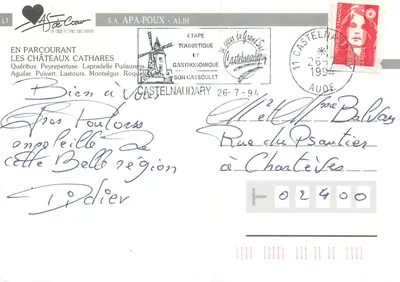 As de Cœur
LT
S.A. APA-POUX - ALBI
EN PARCOURANT
LES CHÂTEAUX CATHARES
Quéribus, Peyrepertuse, Lapradelle Puilaurens,
Aguilar, Puivert, Lastours, Montségur, Roque
ETAPE
TOURISTIQUE
ET
GASTRONOMIQUE
SON CASSOULET
Castelnaudary
CASTELNAUDARY 26-7-94
11 CASTELNAUDARY
26-7
1994
AUDE
Bien à vous
Gros Toulous
de
cette Belle région
Didier
M et Mme Balvay
Rue du Psautier
à Chartèves
02400